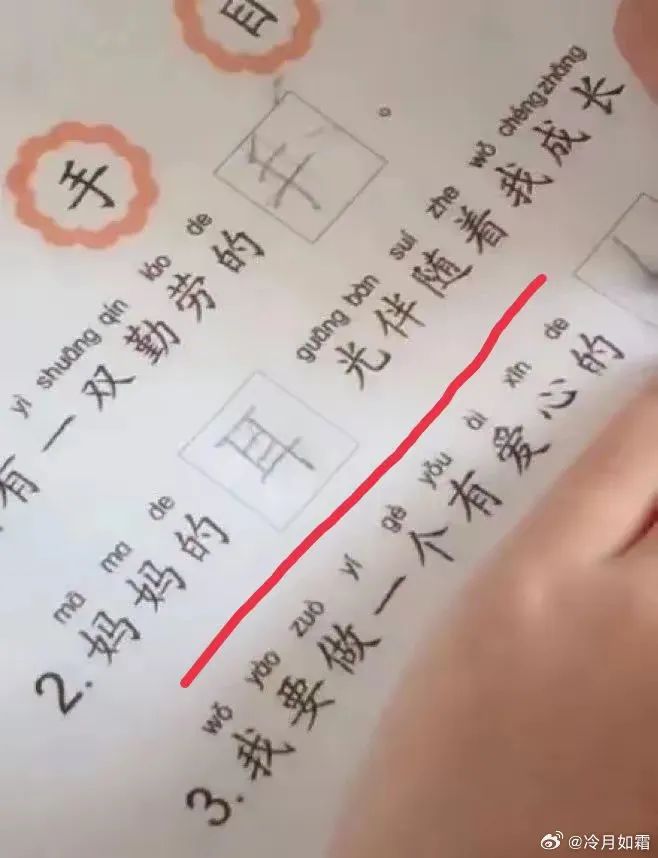 手 目
yì shuāng qín láo de
有一双勤劳的手。
mā ma de guāng bàn suí zhe wǒ chéng zhǎng
2. 妈妈的耳光伴随着我成长
wǒ yào zuò yí gè yǒu ài xīn de
3. 我要做一个有爱心的
@冷月如霜